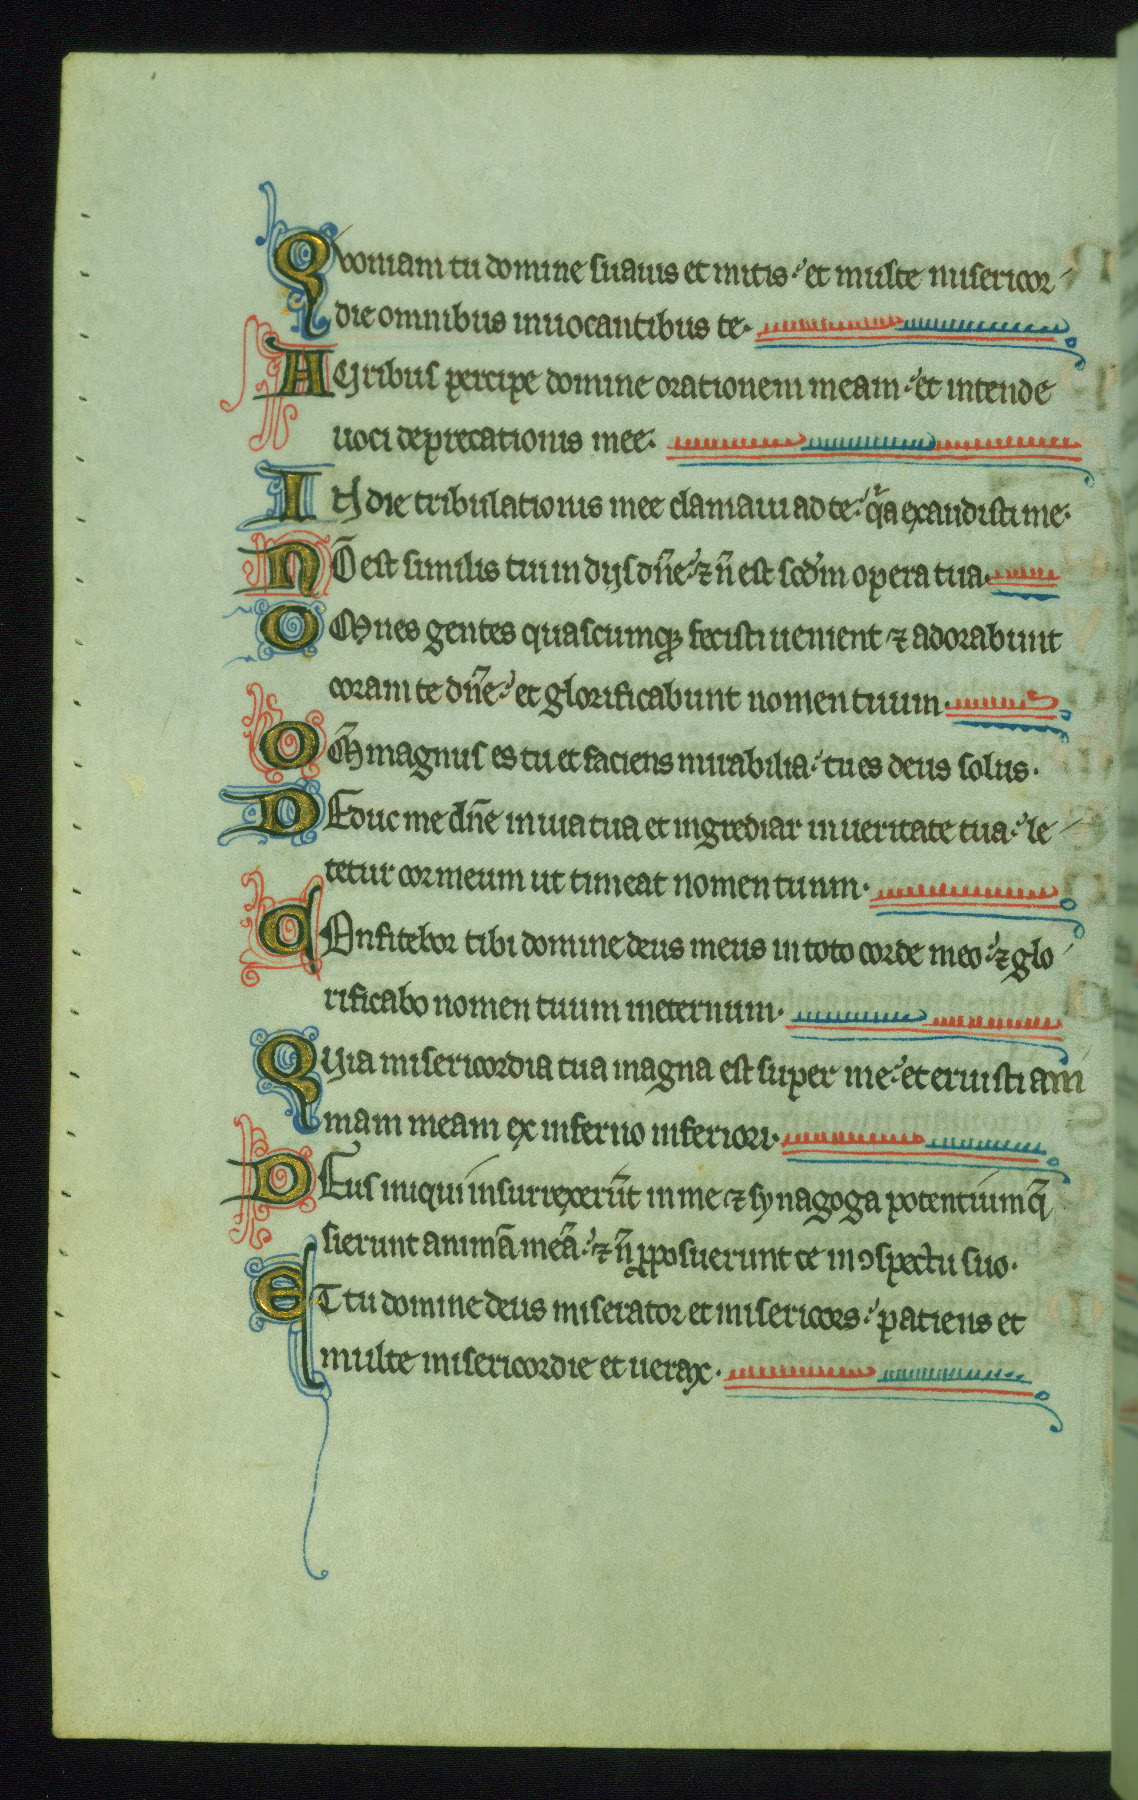 Quoniam tu domine suauis et mitis et multe misericor
die omnibus inuocantibus te.
AUribus percipe domine orationem meam et intende
uoci deprecationis mee.
IN die tribulationis mee clamaui ad te qͥa exaudisti me.
NŌ est similis tui in dijs dn̄e ⁊ n̄ est scd̄m opera tua.
OMnes gentes quascumqꝫ fecisti uenient ⁊ adorabunt
coram te dn̄e et glorificabunt nomen tuum.
QM̄ magnus es tu et faciens mirabilia tu es deus solus.
DEduc me dn̄e in uia tua et ingrediar in ueritate tua le
tetur cor meum ut timeat nomen tuum.
COnfitebor tibi domine deus meus in toto corde meo ⁊ glo
rificabo nomen tuum ineternum.
QUia misericordia tua magna est super me et eruisti ani
mam meam ex inferno inferiori.
DEus iniqui insurrexerūt in me ⁊ synagoga potentium q̄
sierunt animā meā ⁊ n̄ ꝓposuerunt te in ꝯspectu suo.
ET tu domine deus miserator et misericors patiens et
multe misericordie et uerax.